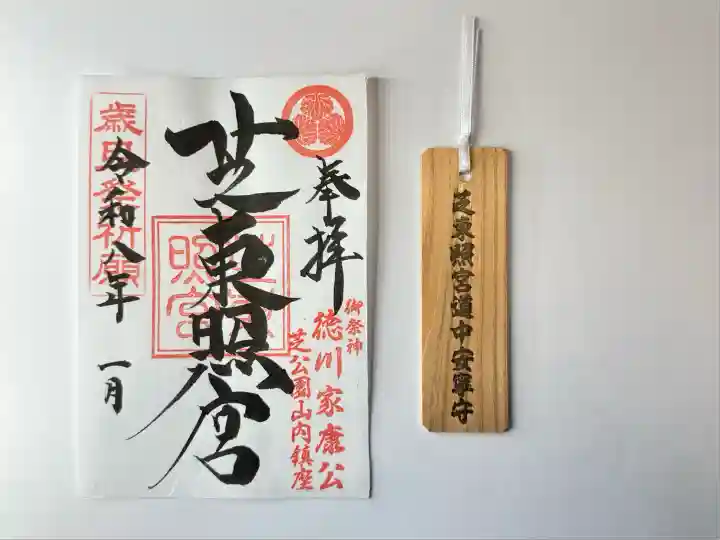 奉拝
御祭神
徳川家康公
芝公園山内鎮座
芝東照宮
歳旦祭祈願
令和八年
一月
芝東照宮道中安寧守